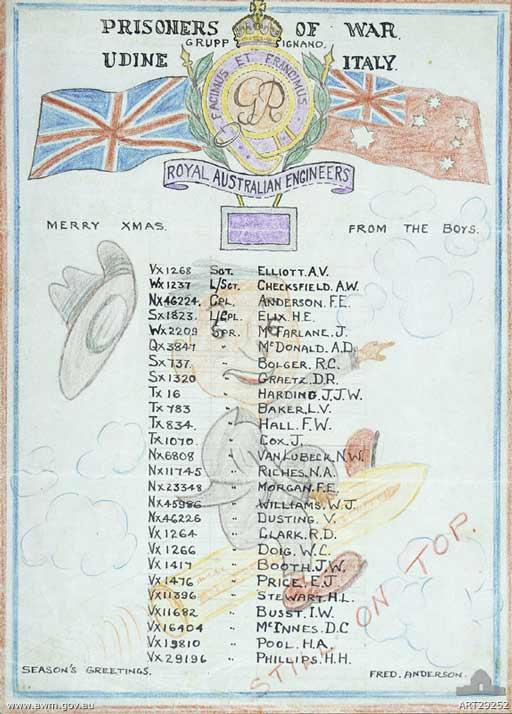 PRISONERS OF WAR.
GRUPP IGNANO.
UDINE ITALY.
FACIMUS ET FRANGIMUS
GR
ROYAL AUSTRALIAN ENGINEERS
MERRY XMAS. FROM THE BOYS.
VX1268 SGT. ELLIOTT. A.V.
WX1237 L/SGT. CHECKSFIELD. A.W.
NX46224. CPL. ANDERSON. F.E.
SX1823. L/CPL. ELIX. H.E.
WX2209 SPR. McFARLANE. J.
QX3847 " McDONALD. A.D.
SX737. " BOLGER. R.C.
SX1320 " GRAETZ. D.R.
TX16 " HARDING. J.J.W.
TX783 " BAKER. L.V.
TX834. " HALL. F.W.
TX1070. " COX. J.
NX6808 " VAN LUBECK. N.W.
NX11745 " RICHES. N.A.
NX23348 " MORGAN. F.E.
NX45986 " WILLIAMS. W.J.
NX46226 " DUSTING. V.
VX1264 " CLARK. R.D.
VX1266 " DOIG. W.C.
VX1417 " BOOTH. J.W.
VX1476 " PRICE. E.J.
VX11396 " STEWART. H.L.
VX11682 " BUSST. I.W.
VX16404 " McINNES. D.C
VX19810 " POOL. H.A.
VX29196 " PHILLIPS. H.H.
STILL ON TOP.
SEASON'S GREETINGS. FRED. ANDERSON.
www.awm.gov.au ART29252